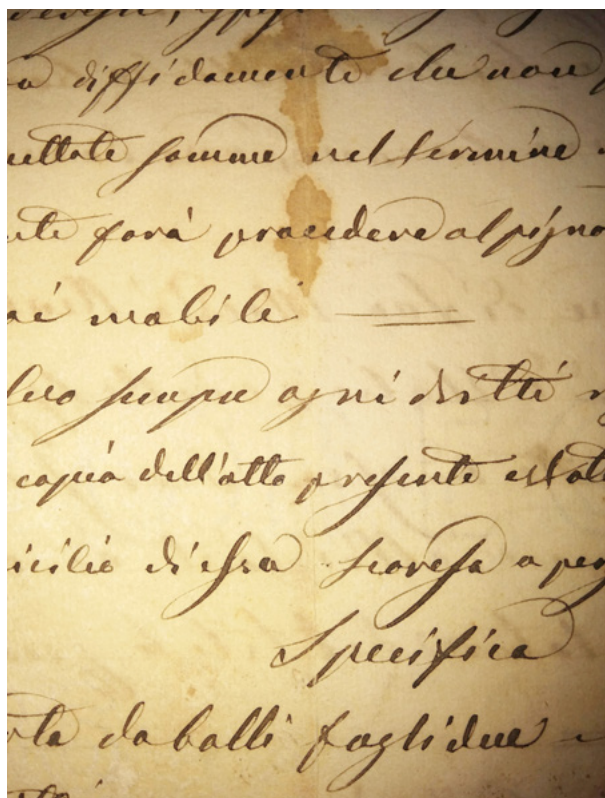 a diffidamente che non
nettate somme nel termine
nte farà procedere al pigno
oi mobili
lvo sempre ogni dritto
copia dell'atto presente è stat
icilio di essa Scoresa a per
Specifica
rta da bolli fogli due